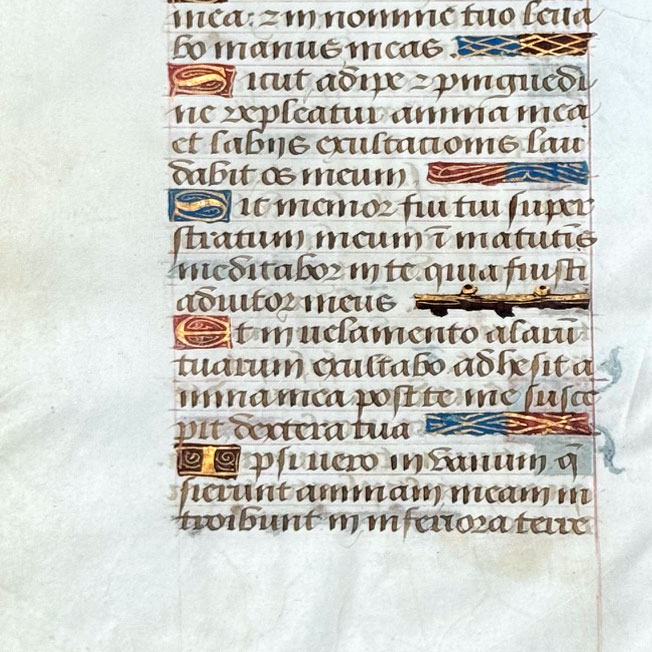 mea: ⁊ in nomine tuo leua
bo manus meas.
Sicut adipe ⁊ pinguedi
ne repleatur anima mea
et labijs exultationis lau
dabit os meum
Sit memor fui tui super
stratum meum ī matutīs
meditabor in te quia fuisti
adiutor meus
Et in uelamento alarū
tuarum exultabo adhesit a
nima mea post te me susce
pit dextera tua
Ipsi uero in uanum q̄
sierunt animam meam in
troibunt in inferiora terre